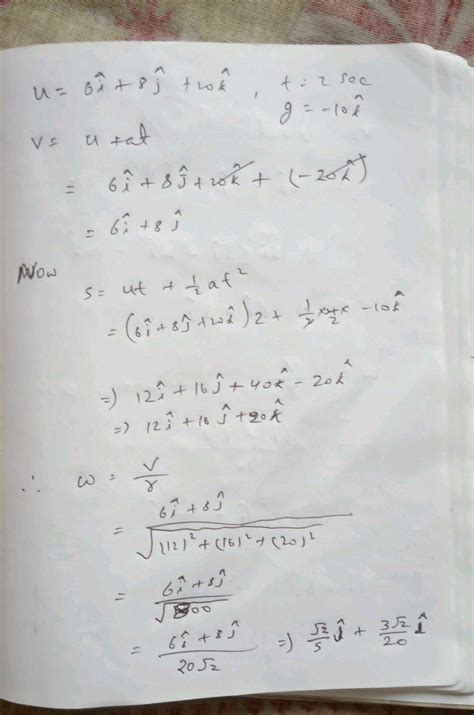 u = 6î + 8ĵ + 20k̂ , t = 2 sec
g = -10k̂
v = u + at
= 6î + 8ĵ + 20k̂ + (-20k̂)
= 6î + 8ĵ
Now
s = ut + 1/2 at²
= (6î + 8ĵ + 20k̂) 2 + 1/2 × 4 × -10k̂
=) 12î + 16ĵ + 40k̂ - 20k̂
=) 12î + 16ĵ + 20k̂
∴ ω = v/r
= (6î + 8ĵ)/√((12)² + (16)² + (20)²)
= (6î + 8ĵ)/√800
= (6î + 8ĵ)/20√2 =) √2/5 ĵ + 3√2/20 î